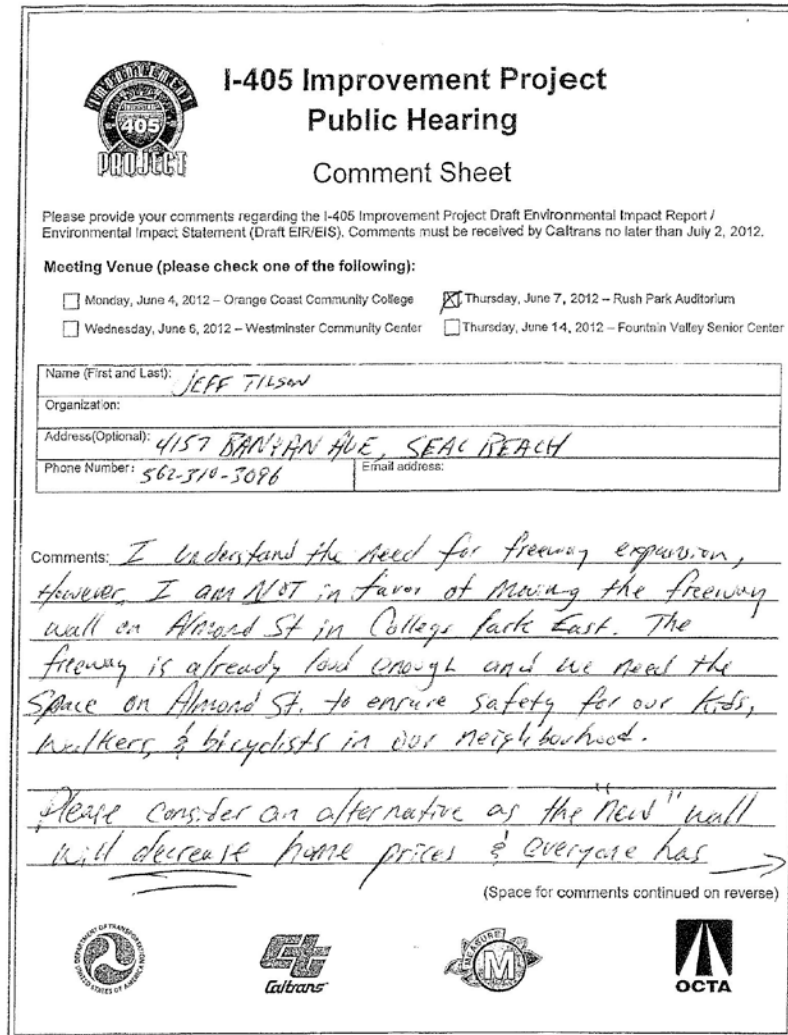 IMPROVEMENT
405
PROJECT
I-405 Improvement Project
Public Hearing
Comment Sheet
Please provide your comments regarding the I-405 Improvement Project Draft Environmental Impact Report /
Environmental Impact Statement (Draft EIR/EIS). Comments must be received by Caltrans no later than July 2, 2012.
Meeting Venue (please check one of the following):
Monday, June 4, 2012 – Orange Coast Community College
Thursday, June 7, 2012 – Rush Park Auditorium
Wednesday, June 6, 2012 – Westminster Community Center
Thursday, June 14, 2012 – Fountain Valley Senior Center
Name (First and Last): JEFF TILSON
Organization:
Address(Optional): 4157 BANYAN AVE, SEAL BEACH
Phone Number: 562-310-3096 Email address:
Comments: I understand the need for freeway expansion,
However, I am NOT in favor of moving the freeway
wall on Almond St in College Park East. The
freeway is already loud enough and we need the
Space on Almond St. to ensure safety for our kids,
walkers, & bicyclists in our neighbourhood.
Please consider an alternative as the "new" wall
will decrease home prices & everyone has →
(Space for comments continued on reverse)
DEPARTMENT OF TRANSPORTATION
UNITED STATES OF AMERICA
Caltrans
MEASURE
M
OCTA